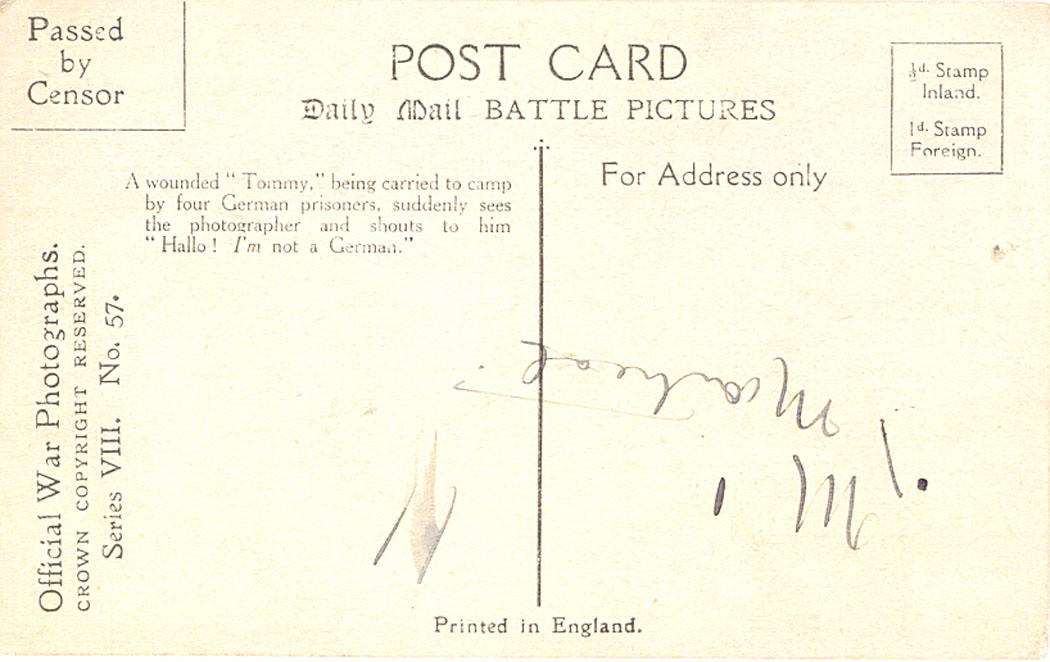 Passed
by
Censor
POST CARD
Daily Mail BATTLE PICTURES
½d. Stamp
Inland.
1d. Stamp
Foreign.
For Address only
A wounded "Tommy," being carried to camp
by four German prisoners, suddenly sees
the photographer and shouts to him
"Hallo! I'm not a German."
Official War Photographs.
CROWN COPYRIGHT RESERVED.
Series VIII. No. 57.
Printed in England.